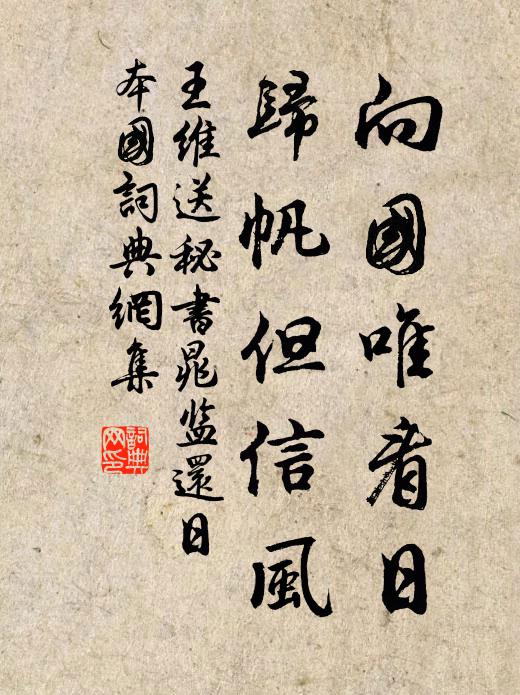 向國唯看日
歸帆但信風
王維送秘書晁监還日
本國詞典網集
詞典
网印